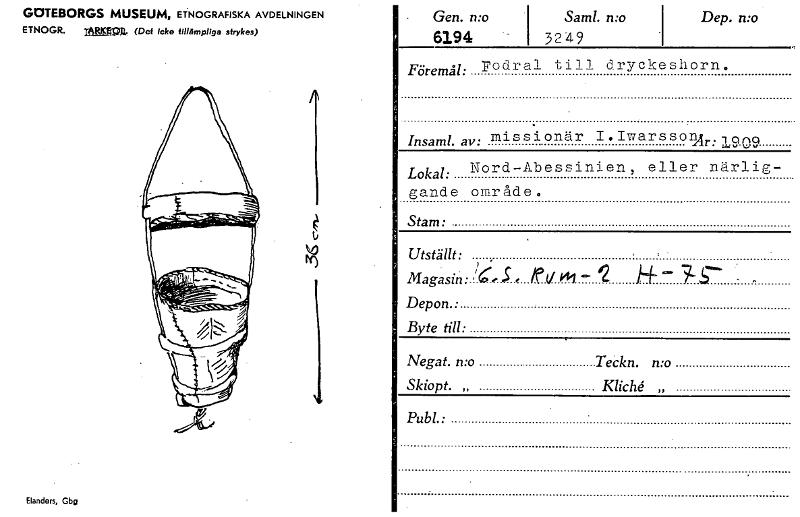 GÖTEBORGS MUSEUM, ETNOGRAFISKA AVDELNINGEN
ETNOGR. ARKEOL. (Det icke tillämpliga strykes)
36 cm
Elanders, Gbg
Gen. n:o Saml. n:o Dep. n:o
6194 3249
Föremål: Fodral till dryckeshorn.
Insaml. av: missionär I.Iwarsson År: 1909
Lokal: Nord-Abessinien, eller närlig-
gande område.
Stam:
Utställt:
Magasin: G.S. RUM-2 H-75
Depon.:
Byte till:
Negat. n:o Teckn. n:o
Skiopt. „ Kliché „
Publ.: